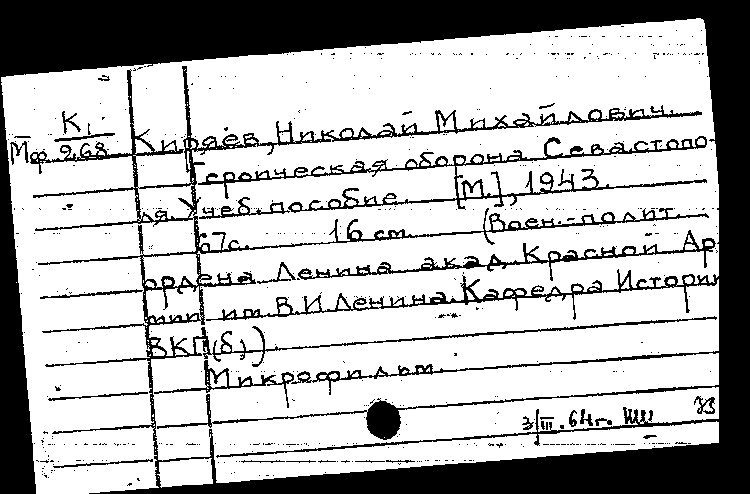 К1
Мф 9268 Киряев, Николай Михайлович.
Героическая оборона Севастопо-
ля. Учеб. пособие. [М.], 1943.
67с. 16 см. (Воен.-полит.
ордена Ленина акад. Красной Ар
мии им. В.И Ленина. Кафедра Истории
ВКП(б).)
Микрофильм.
3/III.64г.